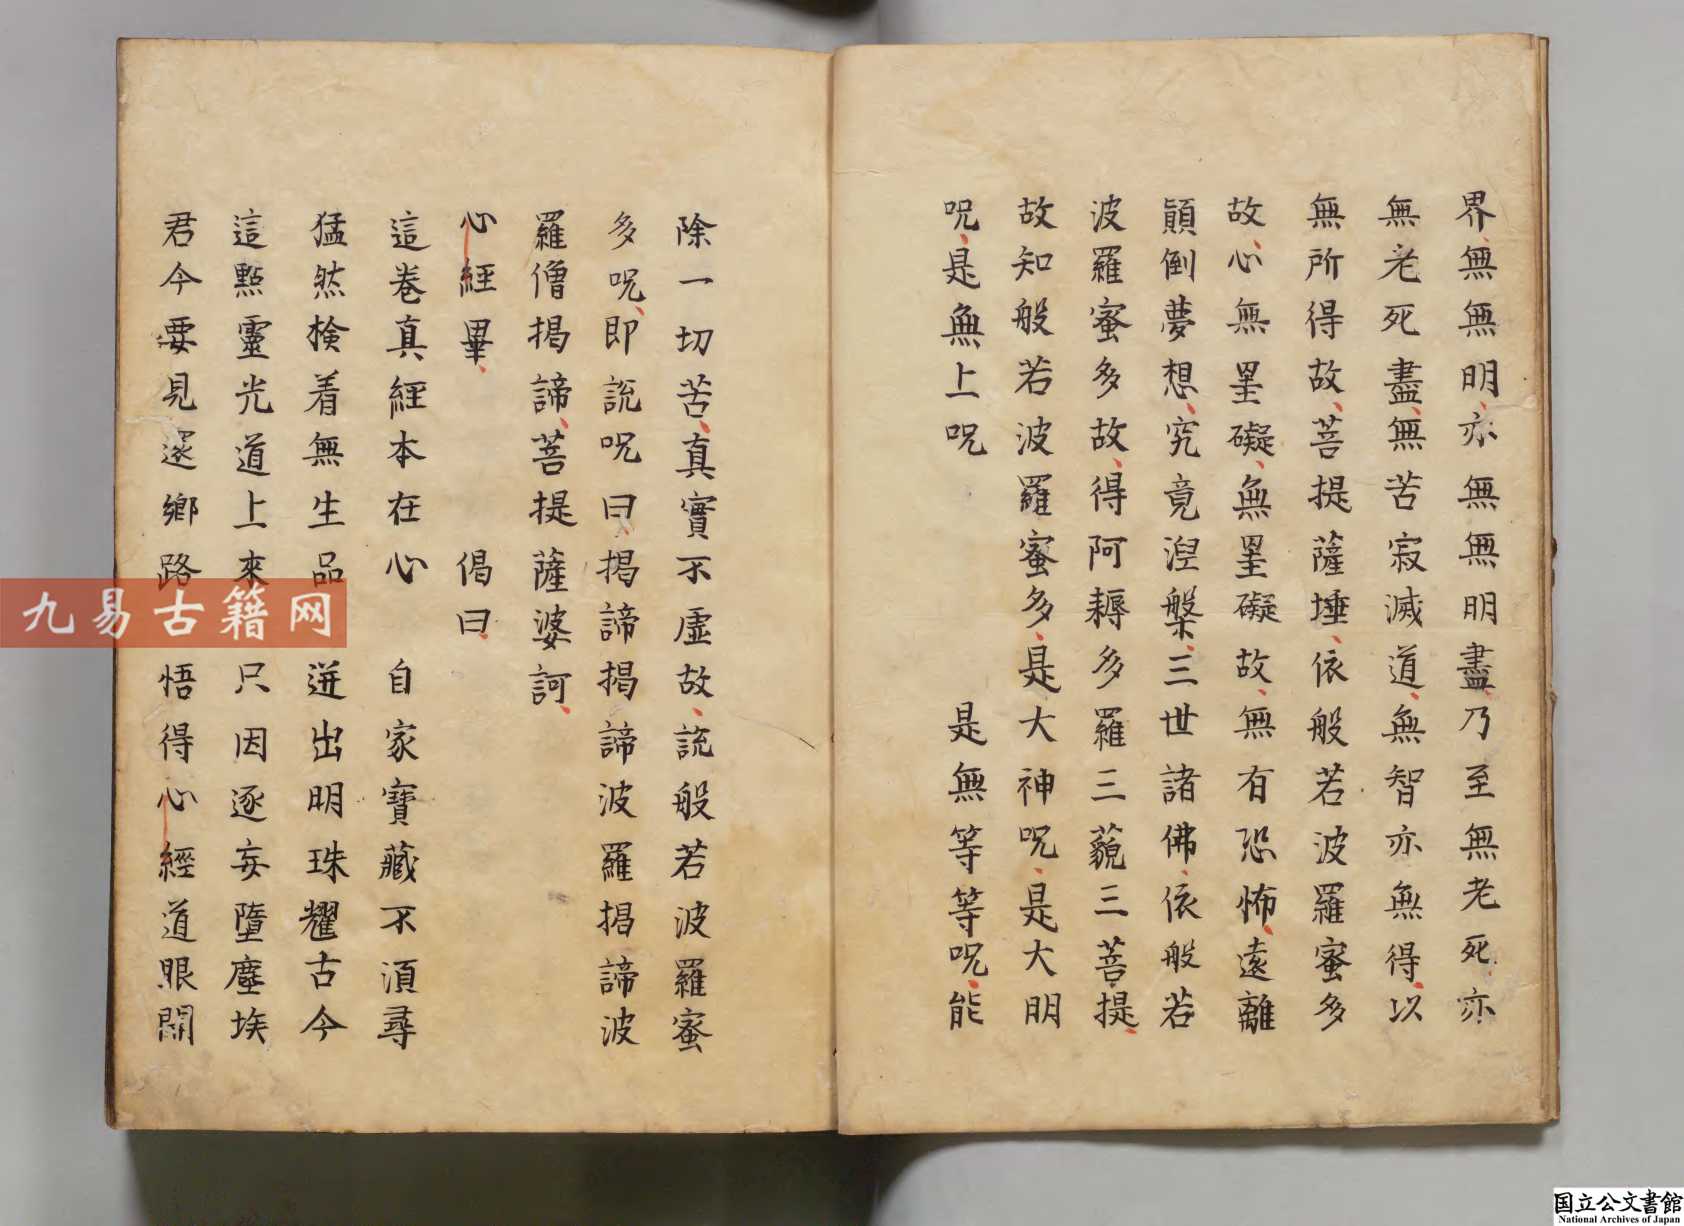 界無無明亦無無明盡乃至無老死亦
無老死盡無苦寂滅道無智亦無得以
無所得故菩提薩埵依般若波羅蜜多
故心無罣礙無罣礙故無有恐怖遠離
顛倒夢想究竟涅槃三世諸佛依般若
波羅蜜多故得阿耨多羅三藐三菩提
故知般若波羅蜜多是大神呪是大明
呪是無上呪 是無等等呪能
除一切苦真實不虛故説般若波羅蜜
多呪即説呪曰揭諦揭諦波羅揭諦波
羅僧揭諦菩提薩婆訶
心經畢 偈曰
這卷真經本在心 自家寶藏不湏尋
猛然檢着無生品 迸出明珠耀古今
這點靈光道上來 只因逐妄墮塵埃
君今要見還鄉路 悟得心經道眼開
九易古籍网
国立公文書館
National Archives of Japan